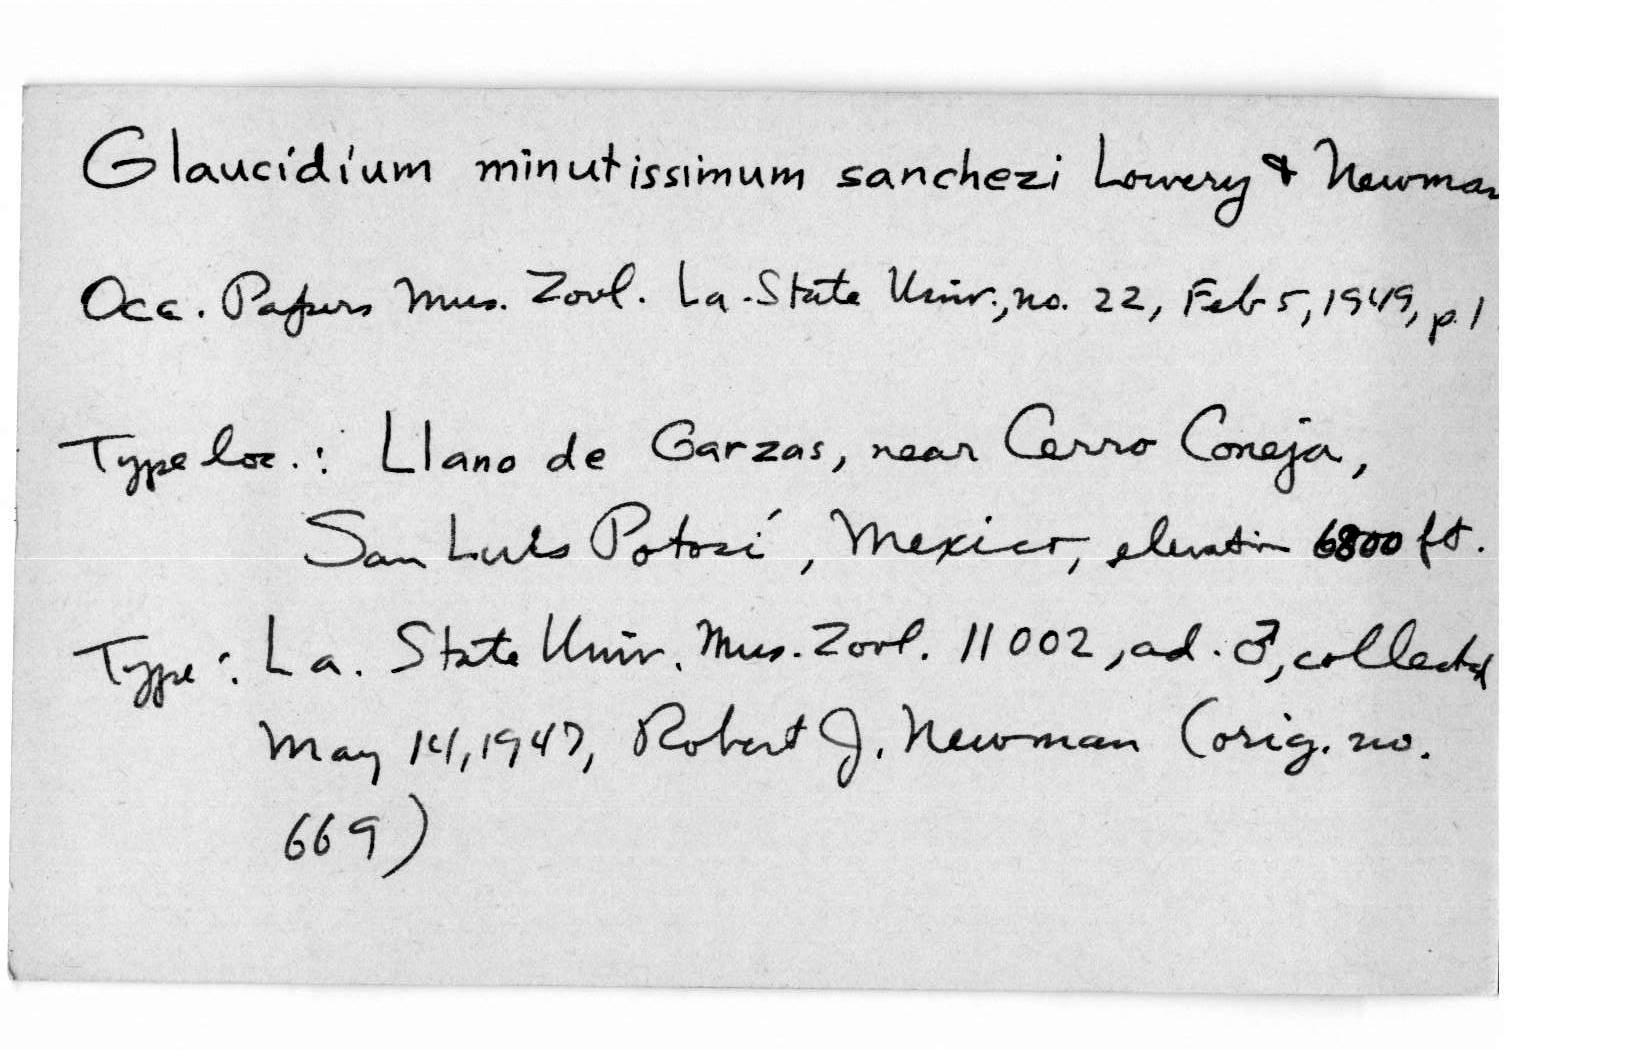 Glaucidium minutissimum sanchezi Lowery & Newman
Occ. Papers Mus. Zool. La. State Univ., no. 22, Feb 5, 1949, p. 1
Type loc.: Llano de Garzas, near Cerro Coneja,
San Luis Potosí, Mexico, elevation 6800 ft.
Type: La. State Univ. Mus. Zool. 11002, ad. ♂, collected
May 14, 1947, Robert J. Newman (orig. no.
669)